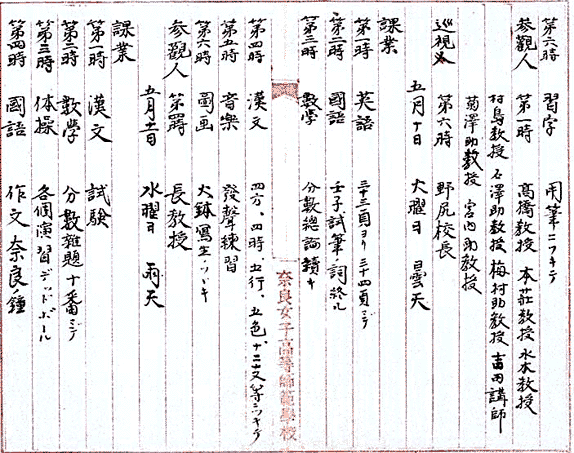 第六時 習字 用筆ニツキテ
参觀人 第一時 高橋教授 本莊教授 水木教授
村島教授 石澤助教授 梅村助教授 吉田講師
菊澤助教授 宮内助教授
巡視 第六時 野尻校長
五月十日 火曜日 曇天
課業
第一時 英語 三十三頁ヨリ三十四頁マデ
第二時 國語 壬子試筆ノ詞終ル
第三時 數学 分數總論續キ
奈良女子高等師範學校
第四時 漢文 四方、四時、五行、五色、十二支等ニツキテ
第五時 音樂 發聲練習
第六時 圖画 火鉢寫生ツヾキ
参觀人 長教授
五月十一日 水曜日 雨天
課業
第一時 漢文 試驗
第二時 數学 分數雜題十番マデ
第三時 体操 各個演習デッドボール
第四時 國語 作文 奈良ノ鐘